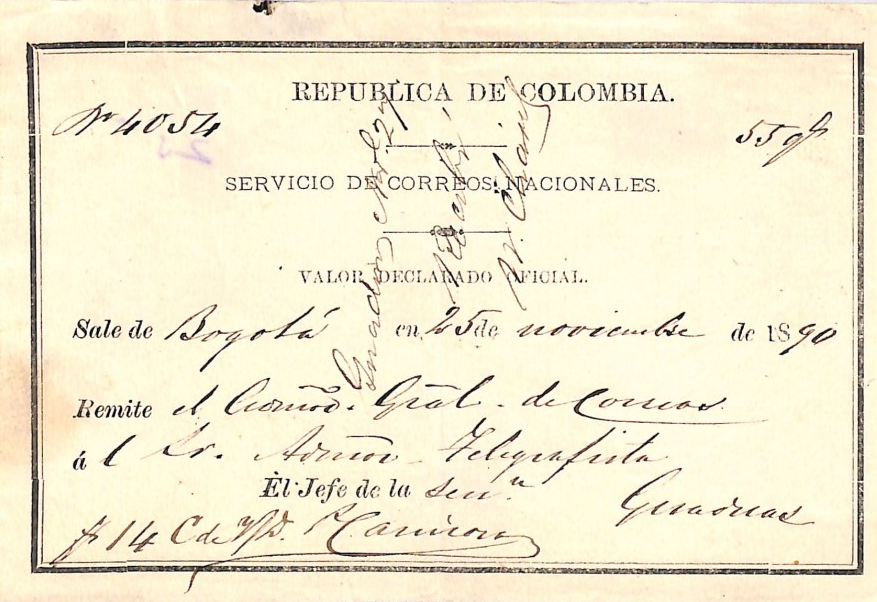 REPUBLICA DE COLOMBIA.
Nº 4054
55 gs
SERVICIO DE CORREOS NACIONALES.
VALOR DECLARADO OFICIAL.
Sale de Bogotá en 25 de noviembre de 1890
Remite el Admor. Gral. de Correos
á l Sr. Admor Telegrafista
El Jefe de la Secn.
Guaduas
$ 14 C de
Guaduas Nov. 27
Recibí